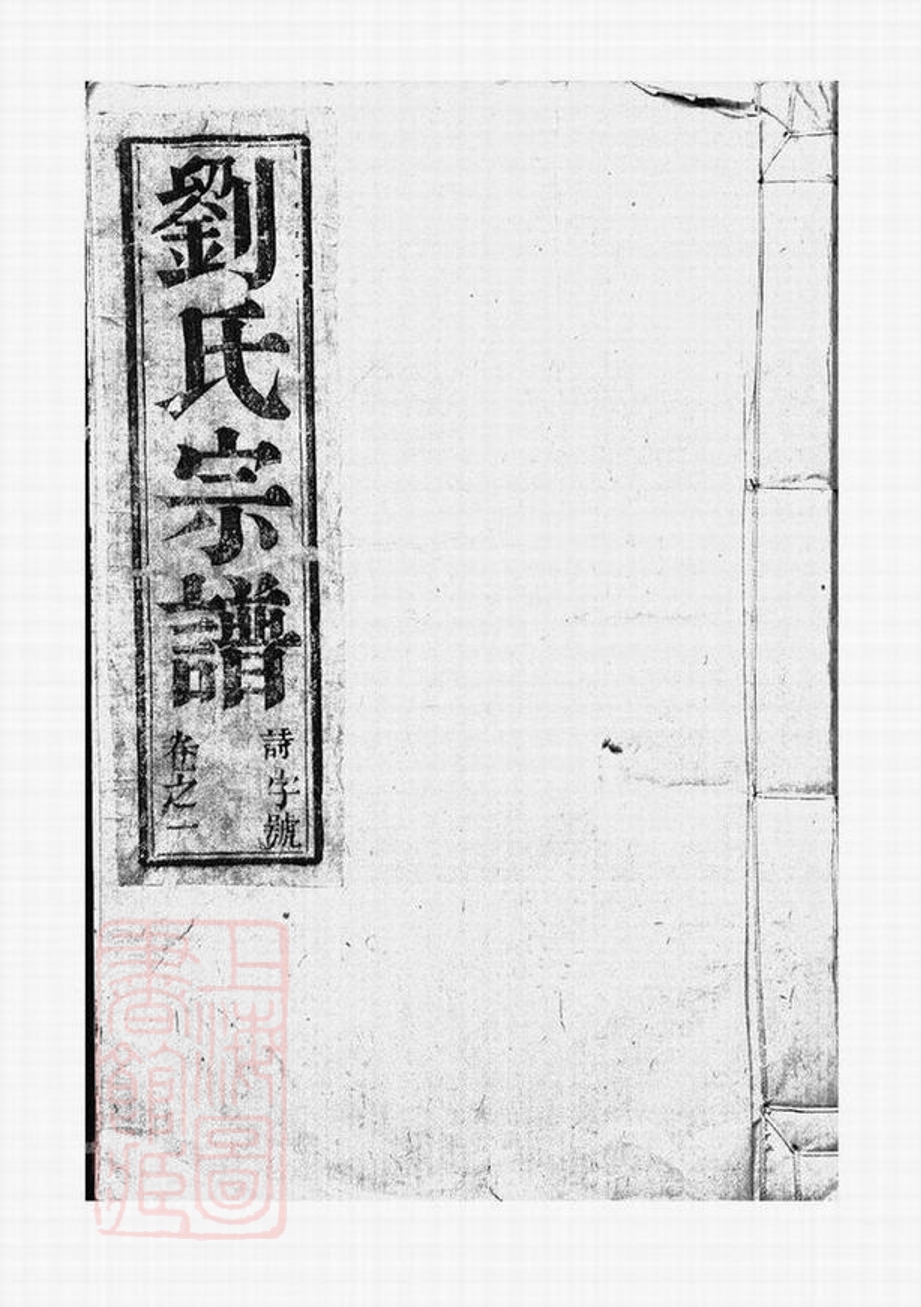 劉氏宗譜
詩字號
卷之一
上海圖
書館藏